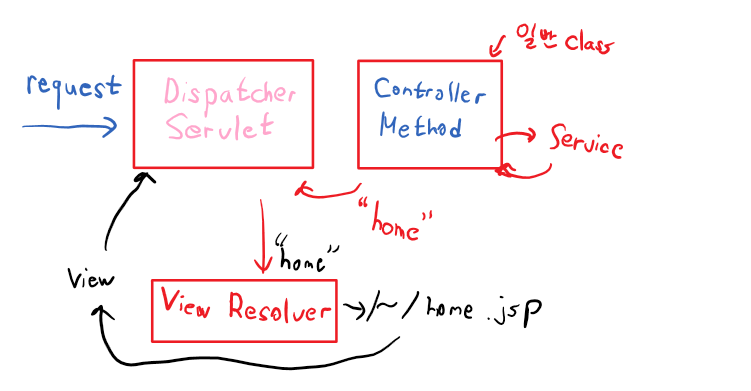 일반 class
request
Dispatcher
Servlet
Controller
Method
Service
"home"
"home"
View
View Resolver
/~/home.jsp